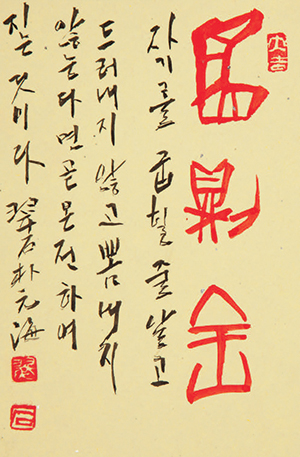 曲則全
大吉
자기를 굽힐 줄 알고
드러내지 않고 뽐내지
않는다면 곧 온전하여
지는 것이다 翠石 朴元海
石